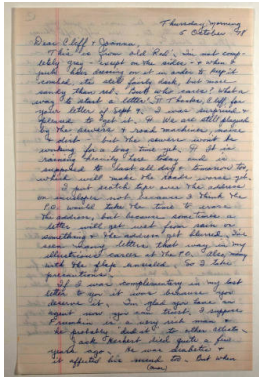 Thursday morning
5 October 78
Dear Cliff & Joanan,
This is from old Red. I'm not comp-
letely gray - except on the sides - & when I
put hair dressing on it in order to keep it
combed, it is still fairly dark, but more
sandy than red. But who cares? What a
way to start a letter! Thanks, Cliff, for
your letter of Sept 4. I was surprised &
pleased to get it. We are still plagued
by the sewers & road machines, noise
& dirt - but the centers won't be
working for a long time yet. It is
raining heavily here today and is
supposed to last all day & tomorrow too,
which will make the roads worse yet.
I put scotch tape over the address
on envelopes not because I think the
P.O. would take the time to erase
the address, but because sometimes a
letter will get wet from rain or
something & the address get blurred, I've
seen many letters that way in my
illustrious career at the P.O. Also, many
with the flap unsealed. So I take
precautions.
If I was complimentary in my last
letter to you it was because you
deserve it. I'm glad you have an
agent now you can trust. I suppose
Franklin is a very sick man &
he probably doesn't to other
Zack Herbert died quite a few
years ago. He was diabetic &
it affected his mind, too. But when
(over)